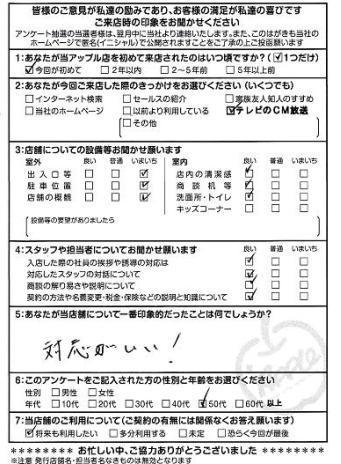 皆様のご意見が私達の励みであり、お客様の満足が私達の喜びです
ご来店時の印象をお聞かせください
アンケート抽選の当選者様は、翌月中に当社より連絡いたします。また、このはがきも当社の
ホームページで匿名(イニシャル)で公開されますことをご了承の上ご投函願います
1:あなたが当アップル店を初めて来店されたのはいつ頃ですか?(☑1つだけ)
☑今回が初めて □2年以内 □2〜5年前 □5年以上前
2:あなたが今回ご来店した際のきっかけをお選びください(いくつでも)
□インターネット検索 □セールスの紹介 □家族友人知人のすすめ
□当社のホームページ □以前より利用している ☑テレビのCM放送
□その他
3:店舗についての設備等お聞かせ願います
室外 良い 普通 いまいち 室内 良い 普通 いまいち
出入口等 □ □ ☑ 店内の清潔感 ☑ □ □
駐車位置 □ □ ☑ 商談机等 ☑ □ □
店舗の概観 □ □ ☑ 洗面所・トイレ ☑ □ □
キッズコーナー □ □ □
設備等の要望がありましたら
4:スタッフや担当者についてお聞かせ願います 良い 普通 いまいち
入店した際の社員の挨拶や誘導の対応は ☑ □ □
対応したスタッフの対話について ☑ □ □
商談の解り易さや説明について ☑ □ □
契約の方法や名義変更・税金・保険などの説明と知識について ☑ □ □
5:あなたが当店舗について一番印象的だったことは何でしょうか?
対応がいい!
6:このアンケートをご記入された方の性別と年齢をお選びください
性別 □男性 □女性
年代 □10代 □20代 □30代 □40代 ☑50代 □60代以上
7:当店舗のご利用について(ご契約の有無には関係なくお答え願います)
☑将来も利用したい □多分利用する □未定 □恐らく今回が最後
******** お忙しい中、ご協力ありがとうございました ********
※注意 発行店舗名・担当者名なきものは無効となります